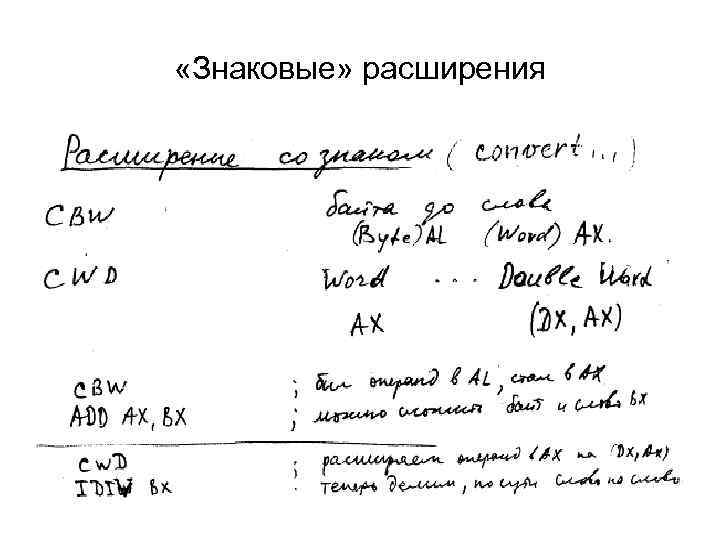 «Знаковые» расширения
Расширение со знаком (convert...)
CBW байта до слова
(Byte) AL (Word) AX.
CWD Word ... Double Word
AX (DX, AX)
CBW ; был операнд в AL, стал в AX
ADD AX, BX ; можно сложить байт и слово BX
CWD ; расширяем операнд в AX на (DX, AX)
IDIV BX ; теперь делим, по сути слово на слово